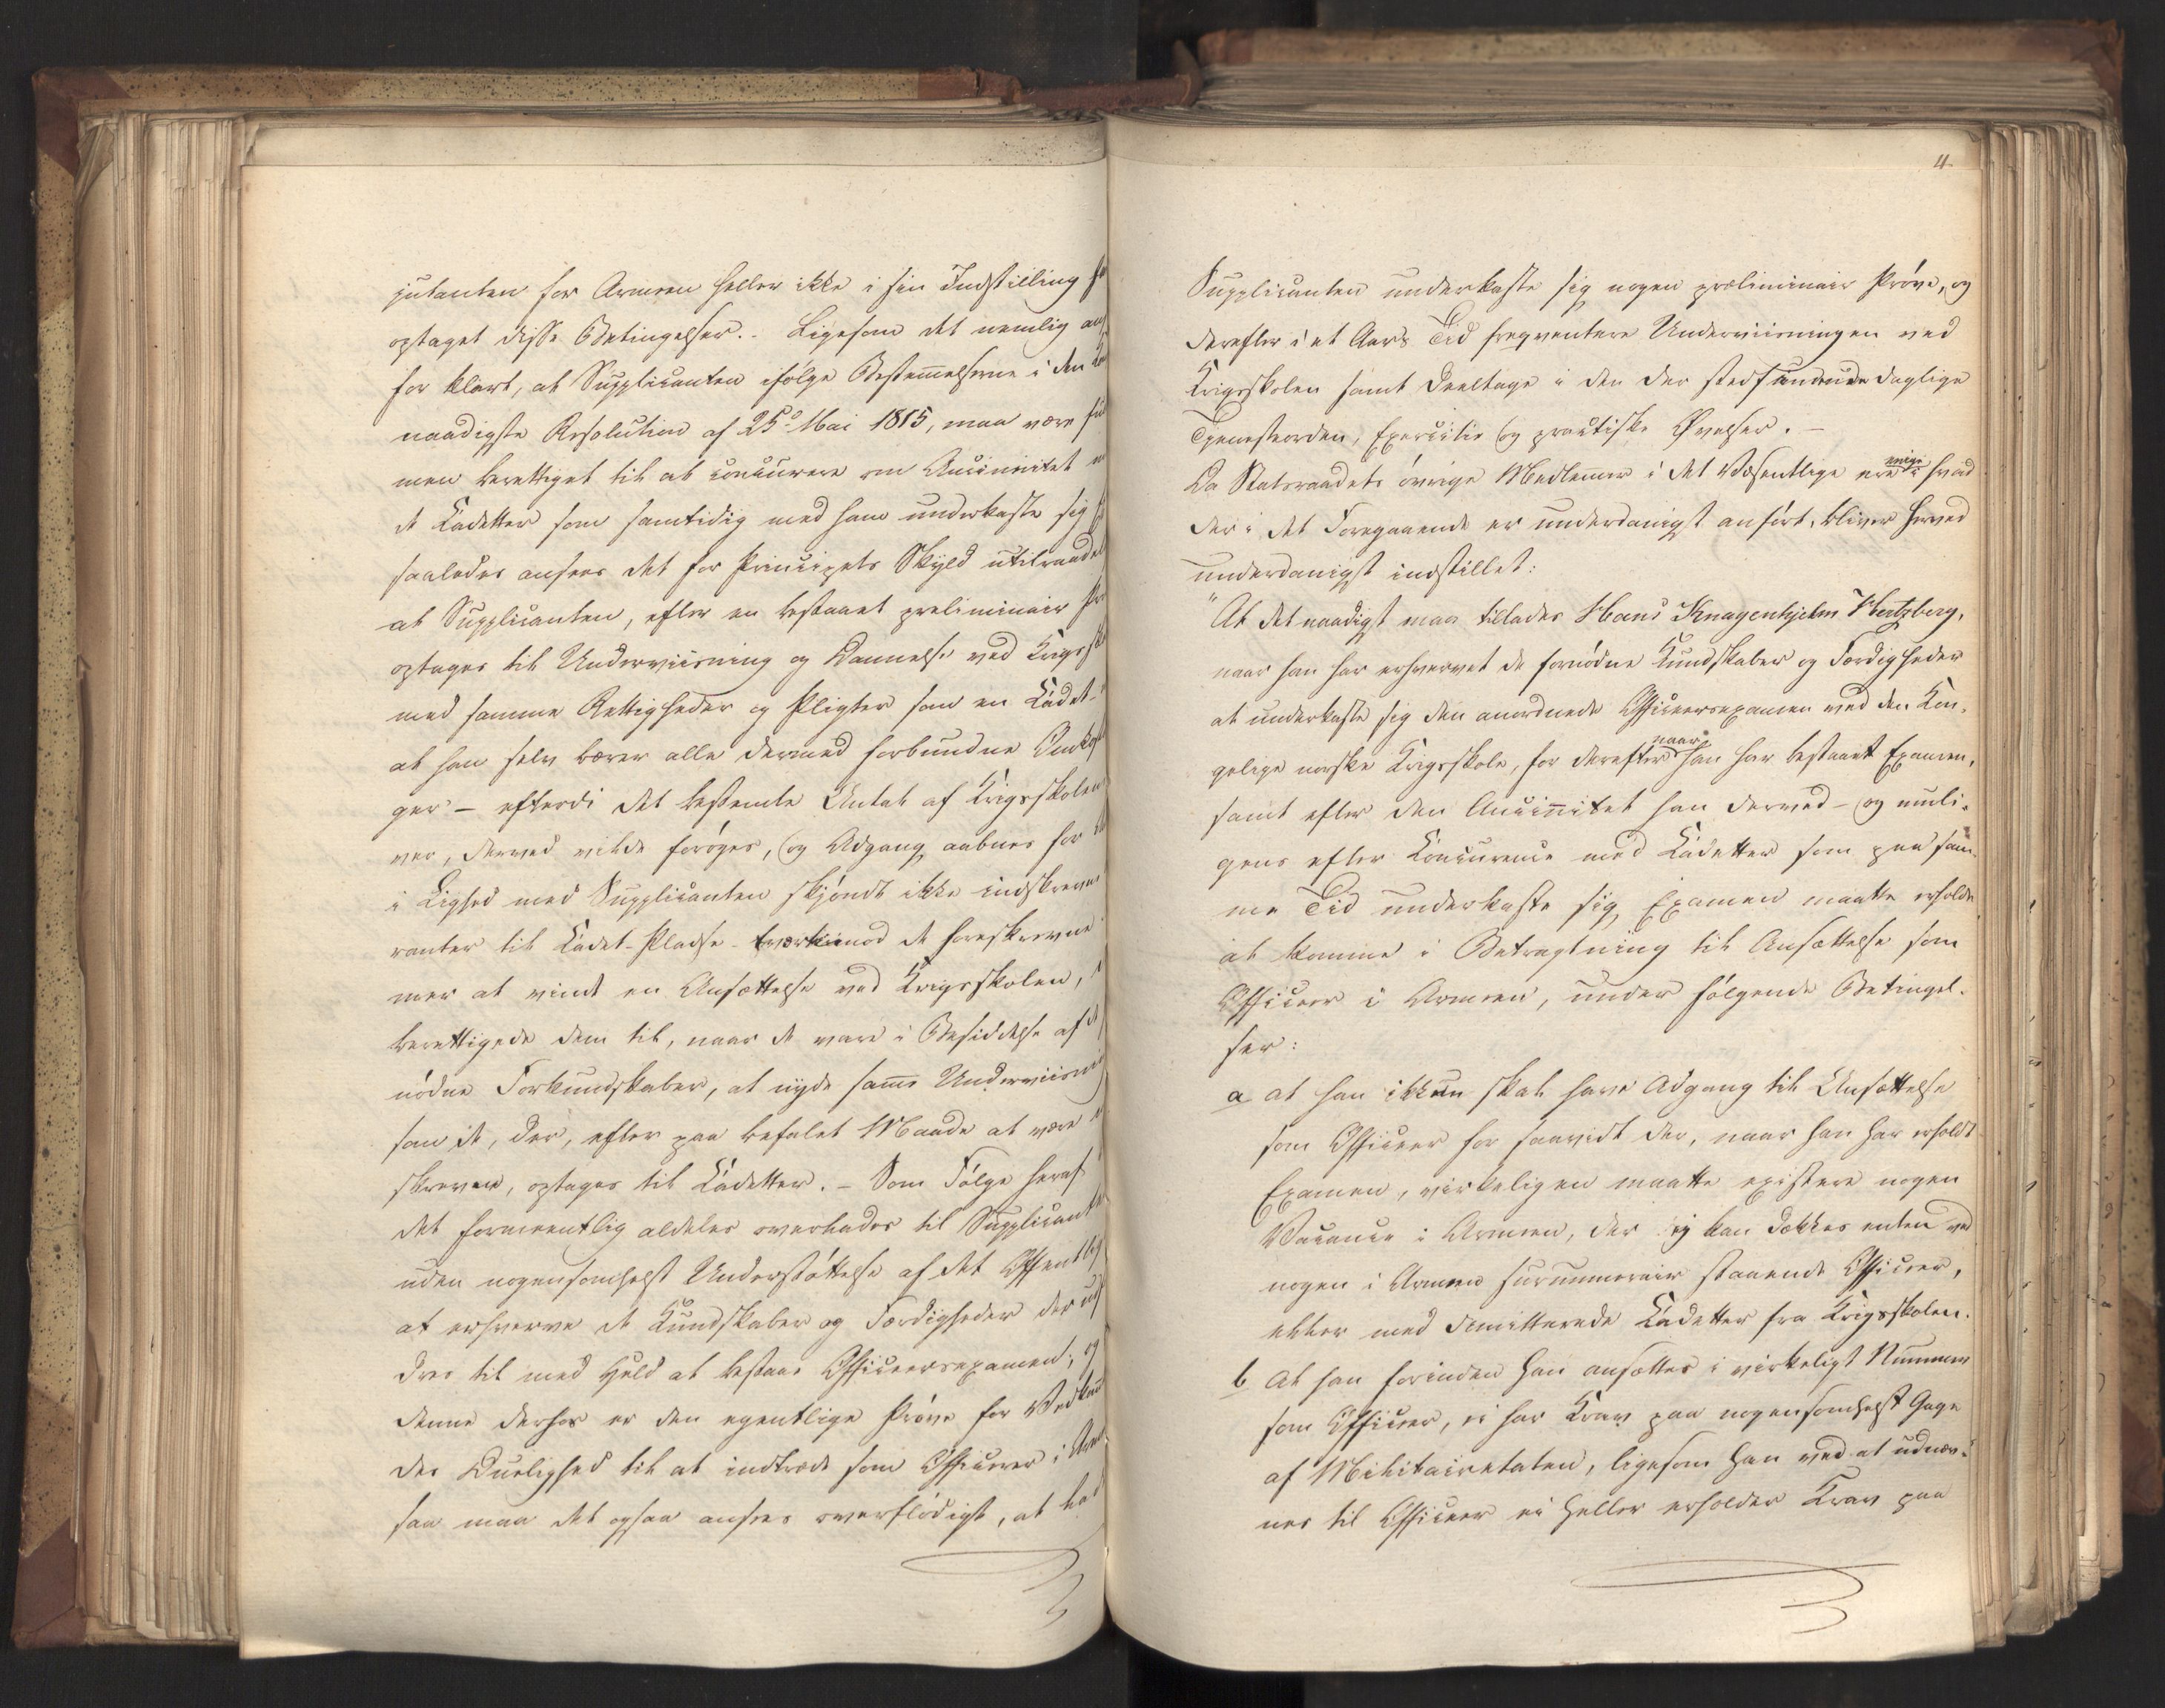 jutanten for Armeen heller ikke i sin Indstilling
optaget disse Betingelser. - Ligesom det nemlig
for klart, at Supplicanten ifølge Bestemmelserne i den
naadigste Resolution af 25de Mai 1815, maa være
men berettiget til at concurrere om Anciennitet
de Cadetter som samtidig med ham underkaste sig
saaledes ansees det for Principets Skyld utilraadel
at Supplicanten, efter en bestaaet preliminair
optages til Underviisning og Dannelse ved Krigssk
med samme Rettigheder og Pligter som en Cadet -
at han selv bærer alle dermed forbundne Omkost
ger - efterdi det bestemte Antal af Krigsskolen
ver, derved vilde forøges, og Adgang aabnes for
i Lighed med Supplicanten skjøndt ikke indskrevne
ranter til Cadet-Pladse - tvertimod de foreskrevne
mer at vinde en Ansættelse ved Krigsskolen,
berettigede dem til, naar de vare i Besiddelse af
nødne Forkundskaber, at nyde samme Underviisni
som de, der, efter paa befalet Maade at være
skrevne, optages til Cadetter. - Som Følge heraf
det formeentlig aldeles overlades til Supplicante
uden nogensomhelst Understøttelse af det Offentlig
at erhverve de Kundskaber og Færdigheder der
dres til med Held at bestaae Officeersexamen; og
denne derhos er den egentlige Prøve for Vedkom
des Duelighed til at indtræde som Officerer i
saa maa det ogsaa ansees overflødigt, at lad
4.
Supplicanten underkaste sig nogen preliminair Prøve, og
derefter i et Aars Tid freqventere Underviisningen ved
Krigsskolen samt deeltage i den der stedfindende daglige
Tjenesteorden, Exercitie og practiske Øvelser. -
Da Statsraadets øvrige Medlemmer i det Væsentlige ere enige i hvad
der i det Foregaaende er underdanigst anført, bliver herved
underdanigst indstillet:
"At det naadigst maa tillades Hans Knagenhjelm Hertzberg,
naar han har erhvervet de fornødne Kundskaber og Færdigheder
at underkaste sig den anordnede Officeersexamen ved den Kon-
gelige norske Krigsskole, for derefter naar han har bestaaet Examen,
samt efter den Anciennitet han derved - og muli-
gens efter Concurrence med Cadetter som paa sam-
me Tid underkaste sig Examen maatte erholde
at komme i Betragtning til Ansættelse som
Officeer i Armeen, under følgende Betingel-
ser:
a at han ikkun skal have Adgang til Ansættelse
som Officeer for saavidt der, naar han har erholdt
Examen, virkeligen maatte existere nogen
Vacance i Armeen, der ej kan dækkes enten ved
nogen i Armeen surnumerair staaende Officeer,
eller med dimitterede Cadetter fra Krigsskolen.
b At han forinden han ansættes i virkeligt Nummer
som Officeer, ei har Krav paa nogensomhelst Gage
af Militairetaten, ligesom han ved at udnæv-
nes til Officeer ei heller erholder Krav paa